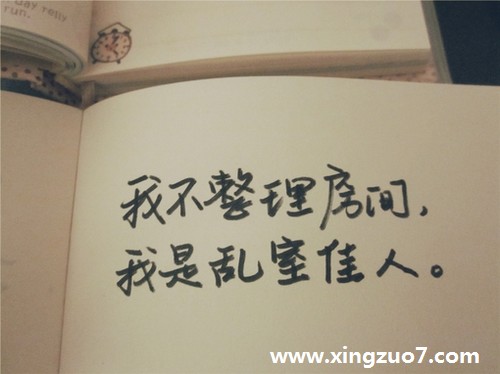 Day relly
run.
我不整理房间,
我是乱室佳人。
www.xingzuo7.com